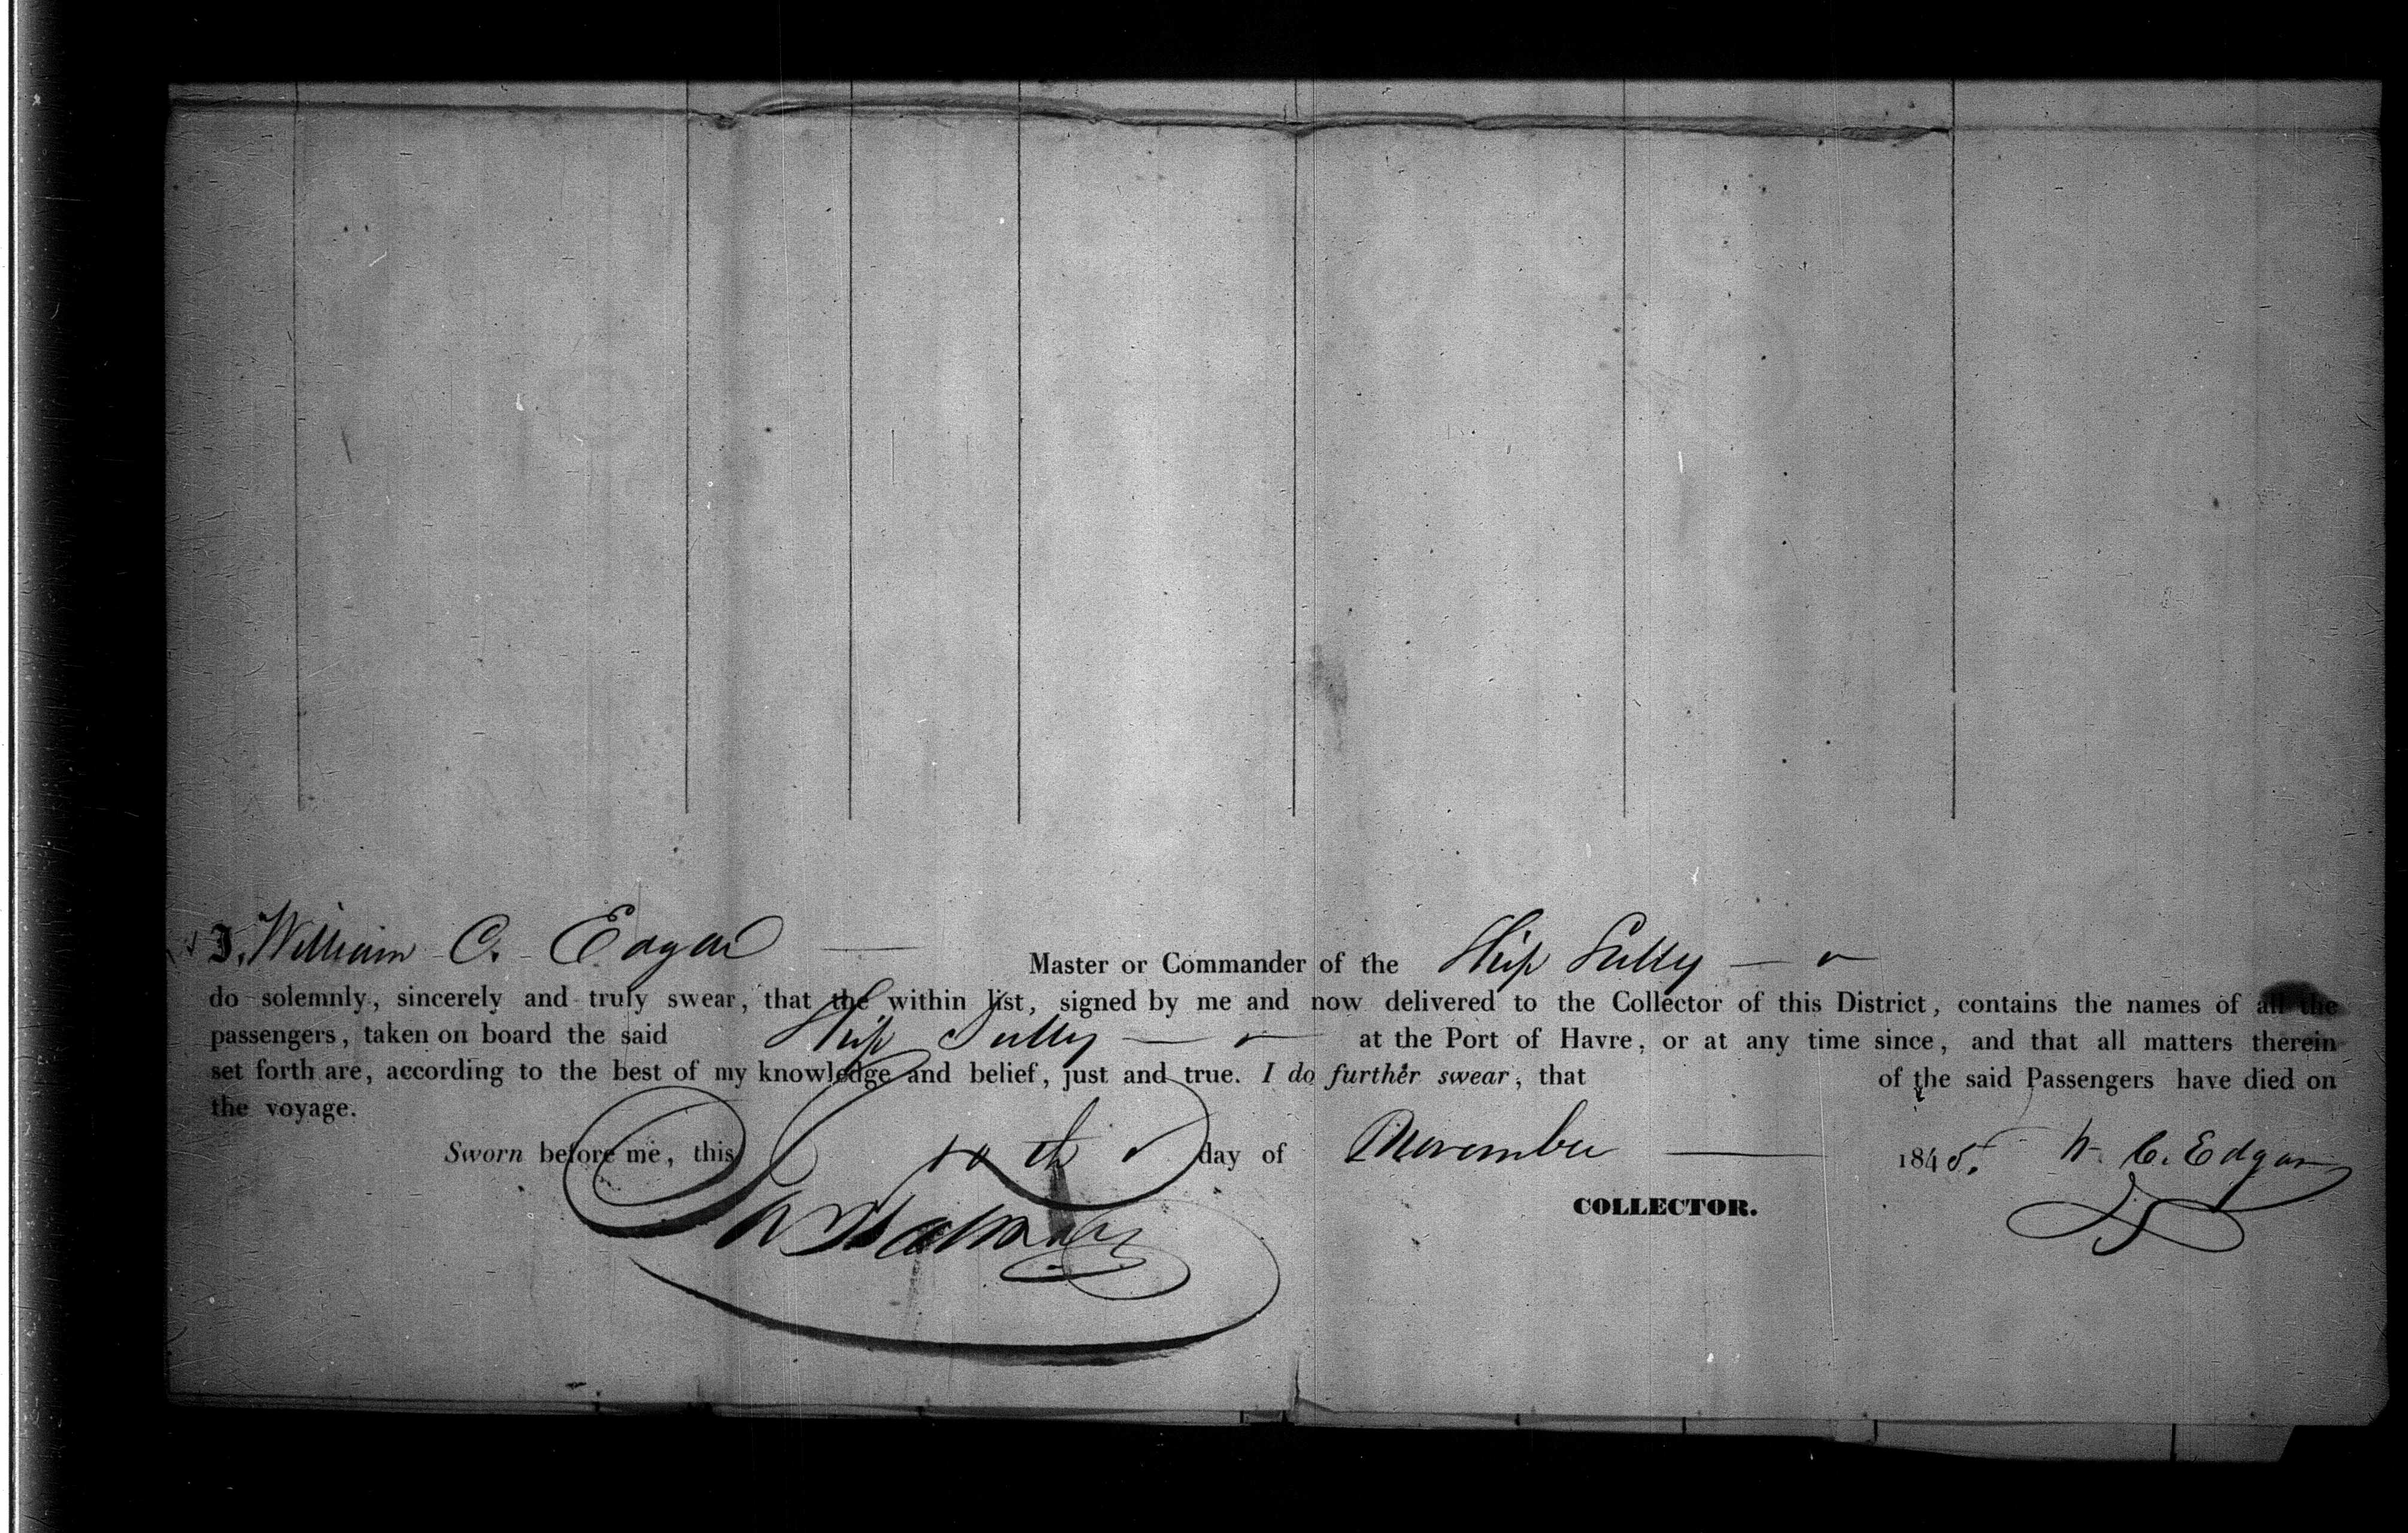 I, William C. Edgar Master or Commander of the Ship Sully
do solemnly, sincerely and truly swear, that the within list, signed by me and now delivered to the Collector of this District, contains the names of all the
passengers, taken on board the said Ship Sully at the Port of Havre, or at any time since, and that all matters therein
set forth are, according to the best of my knowledge and belief, just and true. I do further swear, that of the said Passengers have died on
the voyage.
Sworn before me, this 10th day of November 1845. W. C. Edgar
COLLECTOR.